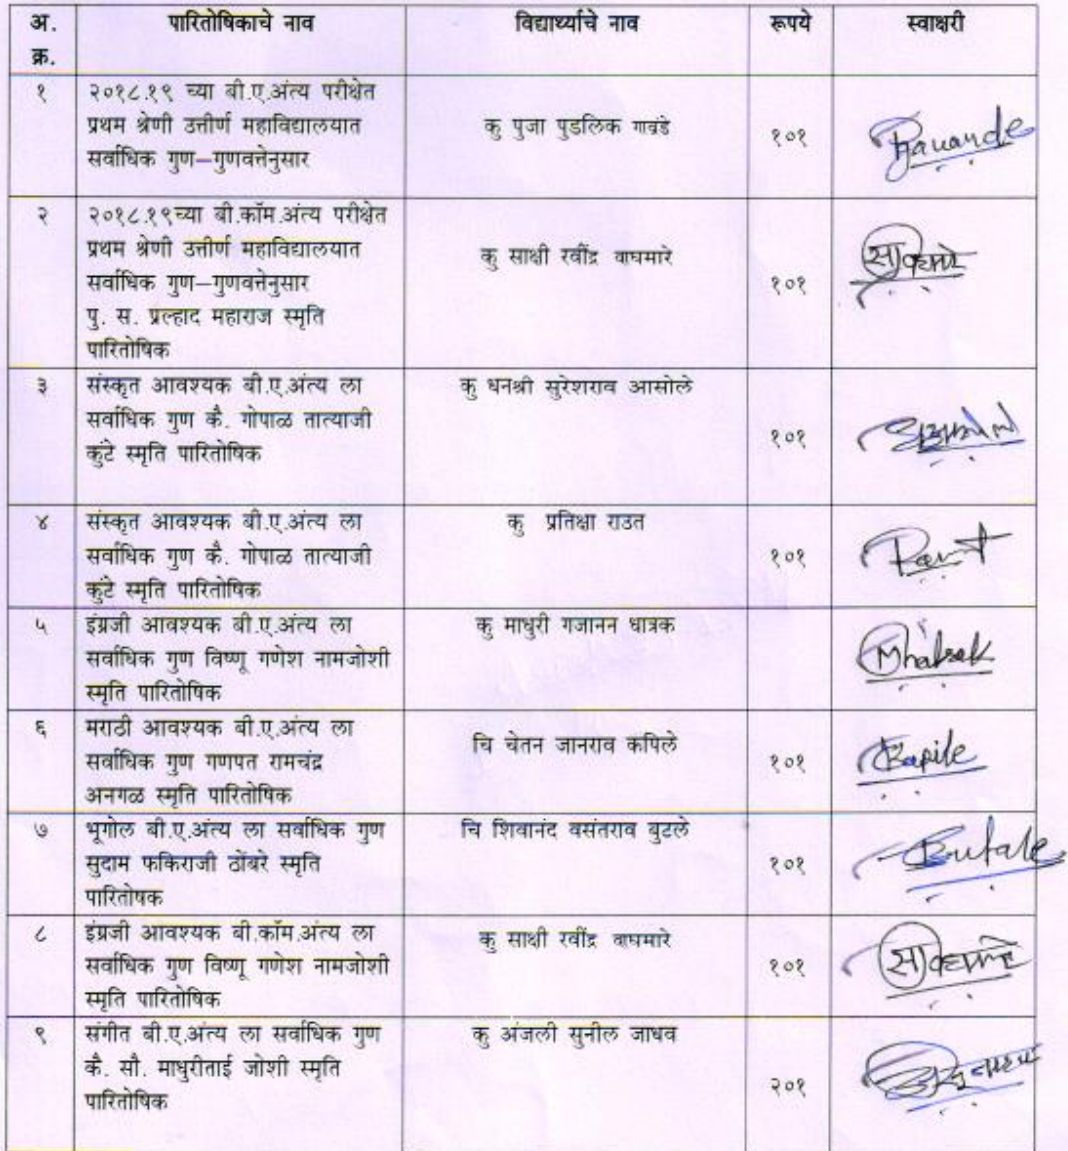 अ. क्र. पारितोषिकाचे नाव विद्यार्थ्याचे नाव रूपये स्वाक्षरी
१ २०१८.१९ च्या बी.ए.अंत्य परीक्षेत
प्रथम श्रेणी उत्तीर्ण महाविद्यालयात
सर्वाधिक गुण–गुणवत्तेनुसार
कु पुजा पुडलिक गावंडे
१०१
Gawande
२ २०१८.१९च्या बी.कॉम.अंत्य परीक्षेत
प्रथम श्रेणी उत्तीर्ण महाविद्यालयात
सर्वाधिक गुण–गुणवत्तेनुसार
पु. स. प्रल्हाद महाराज स्मृति
पारितोषिक
कु साक्षी रवींद्र वाघमारे
१०१
३ संस्कृत आवश्यक बी.ए.अंत्य ला
सर्वाधिक गुण कै. गोपाळ तात्याजी
कुटे स्मृति पारितोषिक
कु धनश्री सुरेशराव आसोले
१०१
४ संस्कृत आवश्यक बी.ए.अंत्य ला
सर्वाधिक गुण कै. गोपाळ तात्याजी
कुटे स्मृति पारितोषिक
कु प्रतिक्षा राउत
१०१
Raut
५ इंग्रजी आवश्यक बी.ए.अंत्य ला
सर्वाधिक गुण विष्णू गणेश नामजोशी
स्मृति पारितोषिक
कु माधुरी गजानन धात्रक
६ मराठी आवश्यक बी.ए.अंत्य ला
सर्वाधिक गुण गणपत रामचंद्र
अनगळ स्मृति पारितोषिक
चि चेतन जानराव कपिले
१०१
Kapile
७ भूगोल बी.ए.अंत्य ला सर्वाधिक गुण
सुदाम फकिराजी ठोंबरे स्मृति
पारितोषक
चि शिवानंद वसंतराव बुटले
१०१
Butale
८ इंग्रजी आवश्यक बी.कॉम.अंत्य ला
सर्वाधिक गुण विष्णू गणेश नामजोशी
स्मृति पारितोषिक
कु साक्षी रवींद्र वाघमारे
१०१
९ संगीत बी.ए.अंत्य ला सर्वाधिक गुण
कै. सौ. माधुरीताई जोशी स्मृति
पारितोषिक
कु अंजली सुनील जाधव
२०१